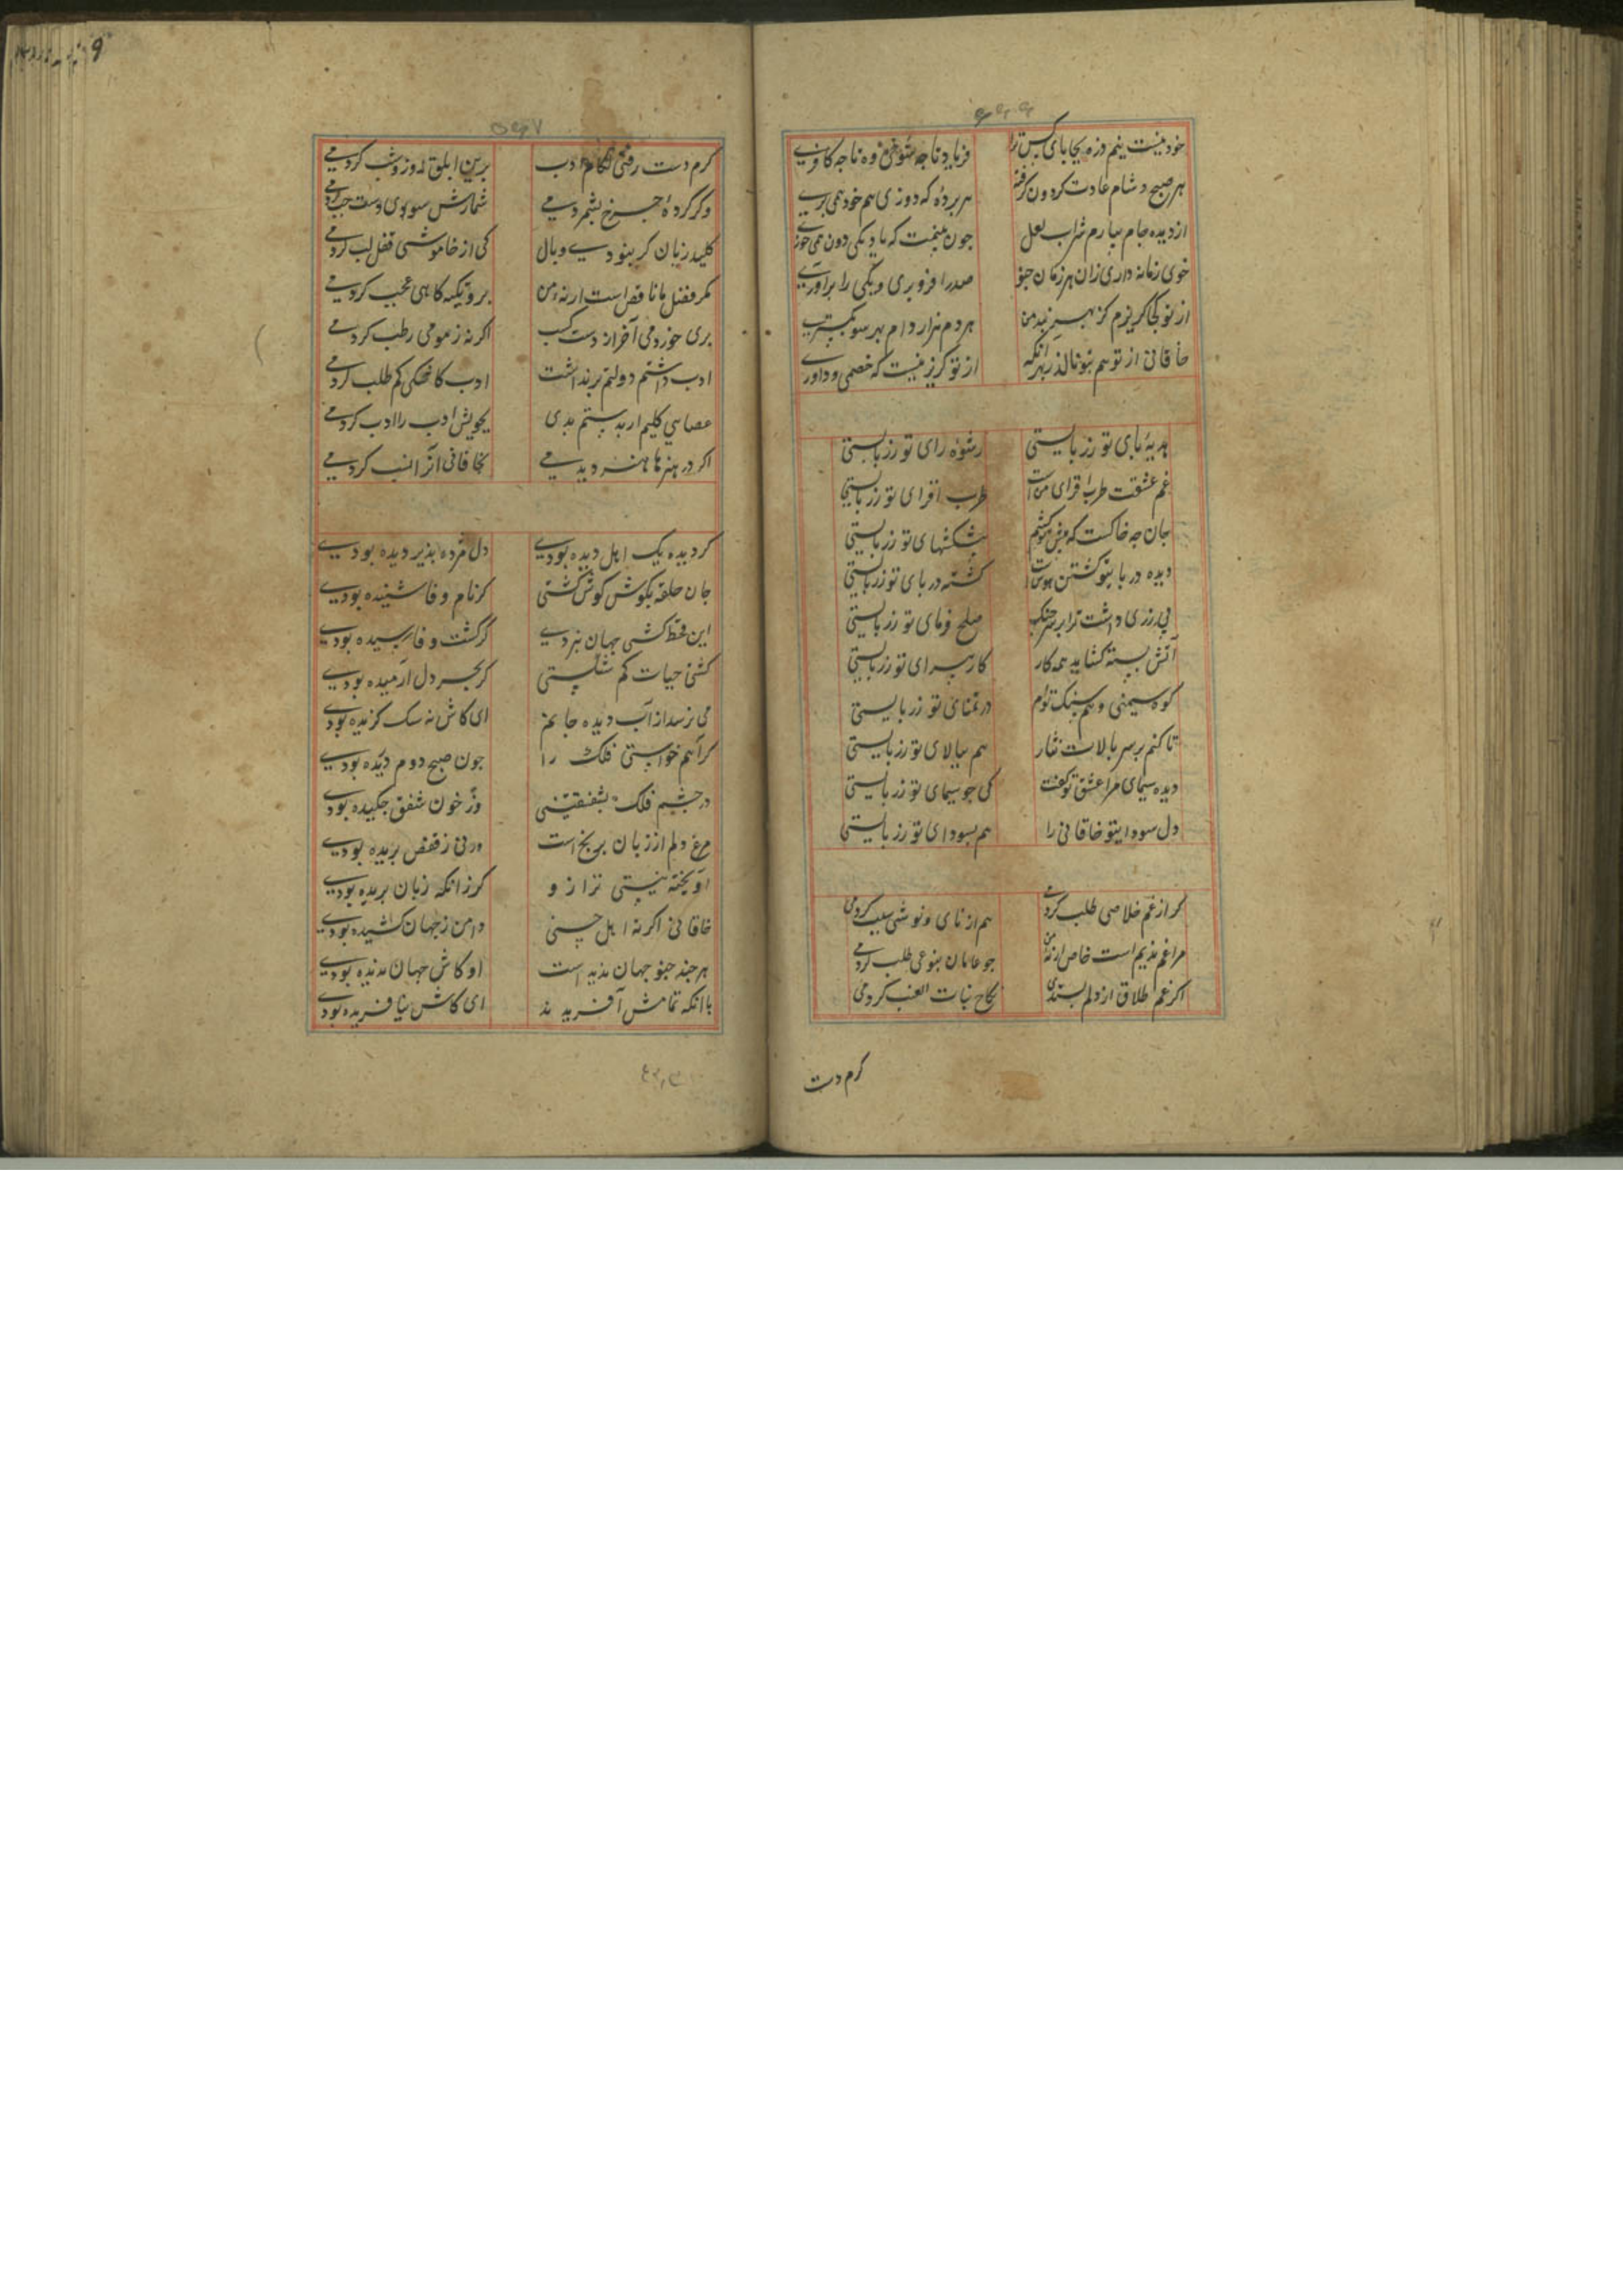 خود نیست نیم ذره بجا پای کس ترا فریاد تا چه شوخی وه تا چه کافری
هر صبح و شام عادت کردون کرفته هر پرده که دوزی هم خود همی دری
از دیده جام جام ببارم شراب لعل جون بینمت که با دیکری دون همی خوری
خوی زمانه داری زان هر زمان جو صد را فرو بری و یکی را برآوری
از تو کجا کریزم کز بهر بند من هر دم هزار دام بهر سو بکستری
خاقانی از تو هم بتو نالد ز بهر آنکه از تو کریز نیست که خصمی و داوری
هدیهٔ پای تو زر بایستی رشوهٔ رای تو زر بایستی
غم عشقت طرب افزای من است طرب افزای تو زر بایستی
جان چه خاکست که پیش تو کشم پیشکشهای تو زر بایستی
دیده در پای تو کشتن هوس است کشته در پای تو زر بایستی
بی زری داشت ترا بر سر جنک صلح فرمای تو زر بایستی
آتش بسته کشاید همه کار کار پیرای تو زر بایستی
کوه سیمینی و هم سنک توام در تمنای تو زر بایستی
تا کنم بر سر بالات نثار هم ببالای تو زر بایستی
دیده سیمای مرا عشق تو کفت کی جو سیمای تو زر بایستی
دل سودا بتو خاقانی را هم بسودای تو زر بایستی
کر از غم خلاصی طلب کردمی هم از نای و نوشی سبب کردمی
مرا غم ندیم است خاص ارنه من جو عامان بنوعی طلب کردمی
اکر غم طلاق از دلم بستدی نکاح بنات العنب کردمی
کرم دست
کرم دست رفتی لکام ادب برین ابلق روز و شب کردمی
وکر کردهٔ چرخ بشمردمی شمارش سوی دست چپ کردمی
کلید زبان کر نبودی وبال کی از خامشی قفل لب کردمی
مکر فضل ما ناقص است ارنه من برو تکیه کاهی عجب کردمی
بری خوردمی آخر از دست کسب اکر نه ز مومی رطب کردمی
ادب داشتم دولتم بر نداشت ادب کاشکی کم طلب کردمی
عصای کلیم ار بدستم بدی بچوبش ادب را ادب کردمی
اکر در هنرها هنر دیدمی بخاقانی آنرا نسب کردمی
کر دیده یک اهل دیده بودی دل مژده پذیر دیده بودی
جان حلقه بکوش کوش کشتی کر نام وفا شنیده بودی
این قحط کشی جهان نبردی کر کشت وفا رسیده بودی
کشتی حیات کم شکستی کر بحر دل آرمیده بودی
می ترسد از آب دیده جانم ای کاش نه سک کزیده بودی
کر آهم خواستی فلک را جون صبح دوم دریده بودی
در چشم فلک بشفقتیستی وز خون شفق جکیده بودی
مرغ دلم از زبان برنج است ورنی ز قفص پریده بودی
آویخته نیستی ترازو کر زانکه زبان بریده بودی
خاقانی اکر نه اهل جستی دامن ز جهان کشیده بودی
هر جند جنو جهان ندیده است او کاش جهان ندیده بودی
با آنکه تمامش آفریدند ای کاش نیافریده بودی